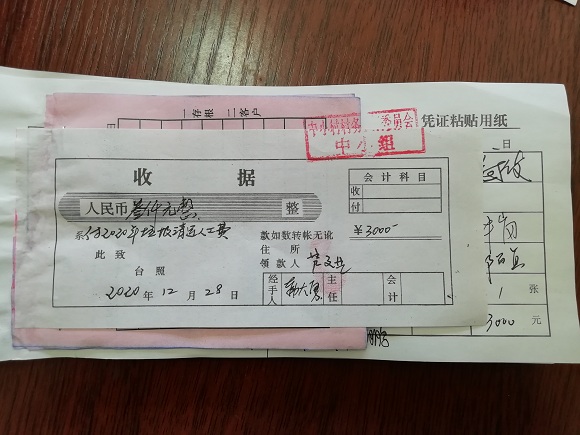 一存根 二客户
凭证粘贴用纸
委员会
中小组
日
收 据
会计科目
收
付
人民币 叁仟元整 整
¥3000
系付2020年垃圾清运人工费
款如数转帐无讹
此致
住所
台照
领款人
2020年12月28日
经手人
主任
会计
1 张
3000 元